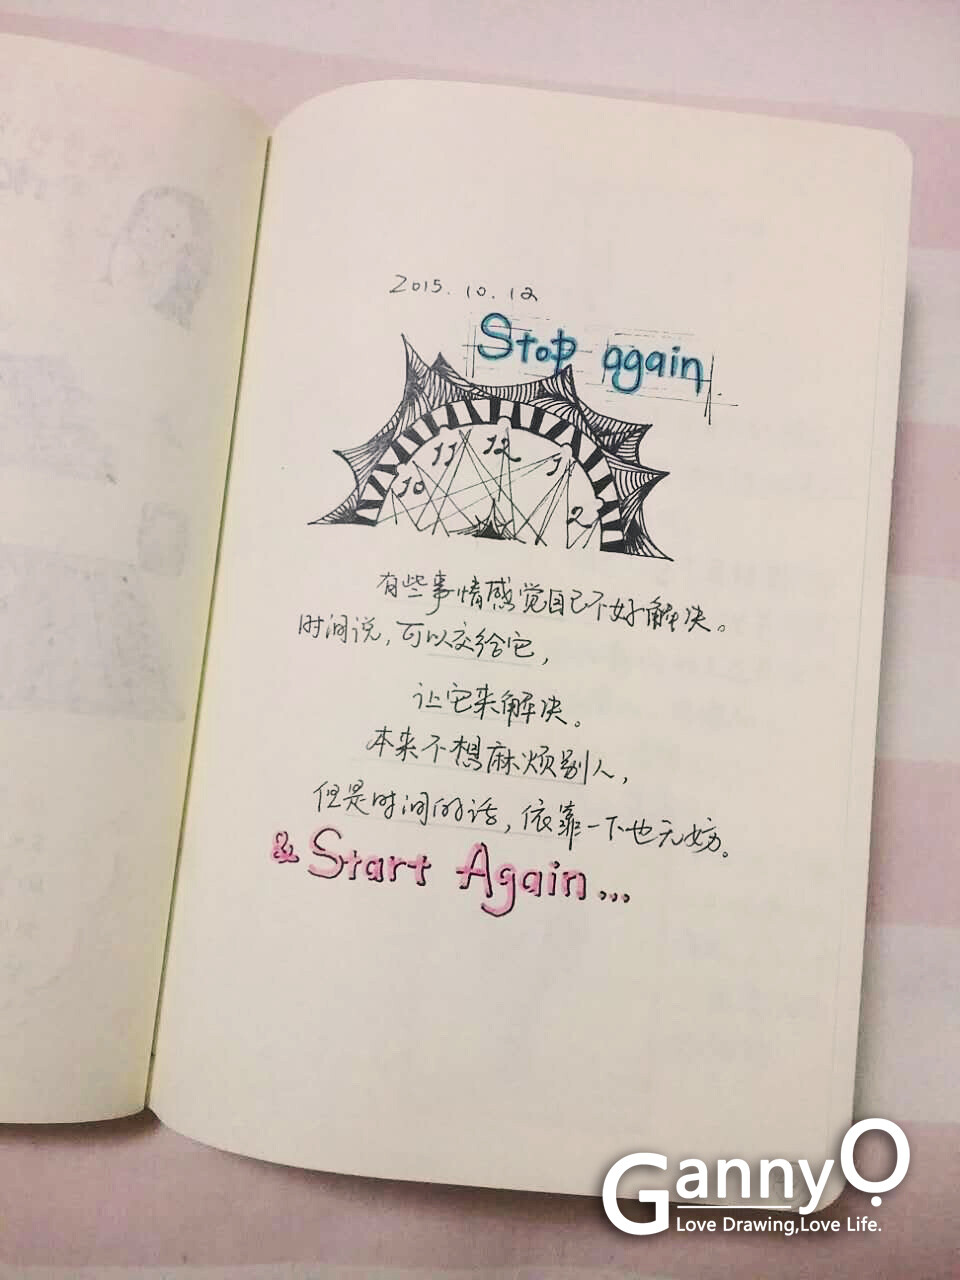 2015.10.12
Stop again
10 11 12 1 2
有些事情感觉自己不好解决。
时间说，可以交给它，
让它来解决。
本来不想麻烦别人，
但是时间的话，依靠一下也无妨。
& Start Again...
GannyQ
Love Drawing,Love Life.